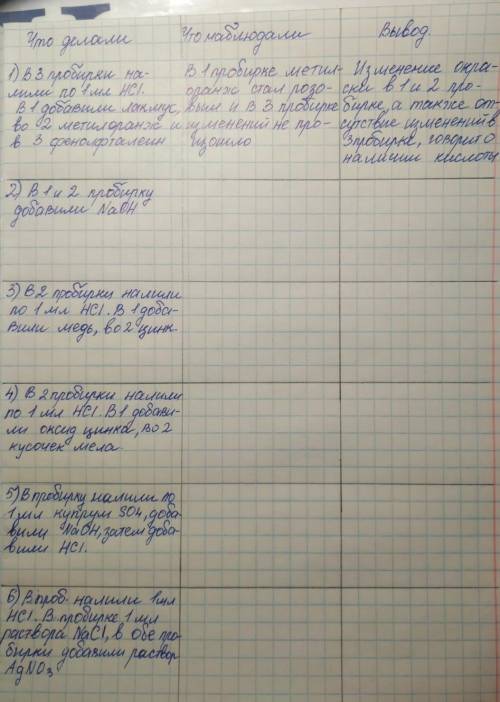 Что делали
Что наблюдали
Вывод.
1) В 3 пробирки на-
лили по 1 мл HCl.
В 1 добавили лакмус,
во 2 метилоранж и
в 3 фенолфталеин
В 1 пробирке метил-
оранж стал розо-
вым и в 3 пробирке
изменений не про-
изошло
Изменение окра-
ски в 1 и 2 про-
бирке, а также от-
сутствие изменений в
3 пробирке, говорит о
наличии кислоты
2) В 1 и 2 пробирку
добавили NaOH
3) В 2 пробирки налили
по 1 мл HCl. В 1 доба-
вили медь, во 2 цинк
4) В 2 пробирки налили
по 1 мл HCl. В 1 добави-
ли оксид цинка, во 2
кусочек мела.
5) В пробирку налили по
1 мл купрум SO4, доба-
вили NaOH, затем доба-
вили HCl.
6) В проб. налили 1 мл
HCl. В пробирке 1 мл
раствора NaCl, в обе про-
бирки добавили раствор
AgNO3